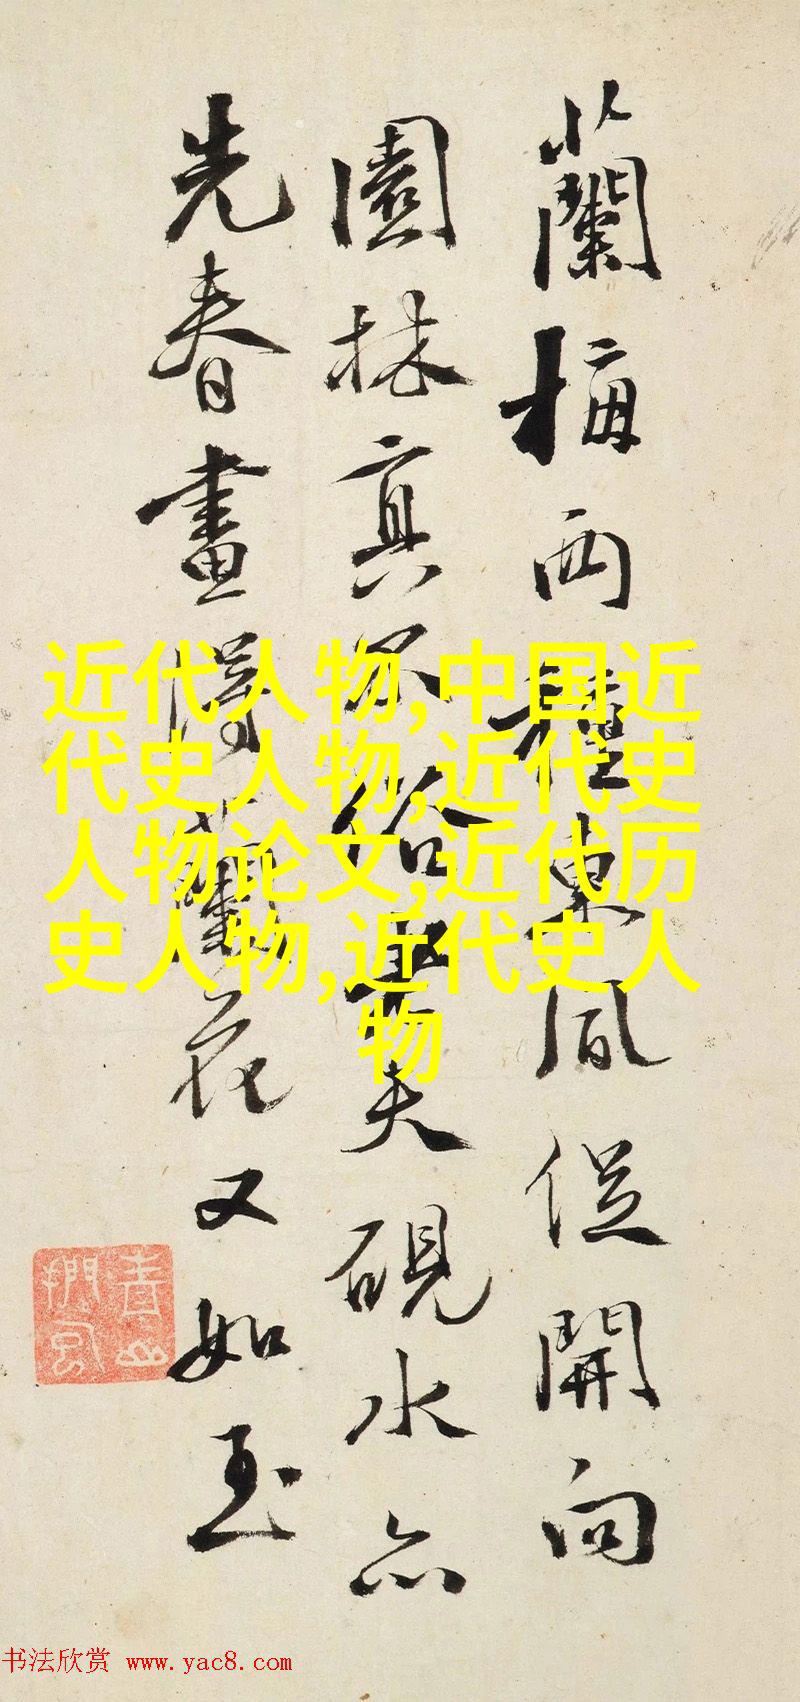 蘭梅两種東風促開向
園林真不俗夫硯水亦
先春畫得蘭花又如玉
近代人物,中国近
代史人物,近代史
人物论文,近代历
史人物,近代史人
物
书法欣赏 www.yac8.com